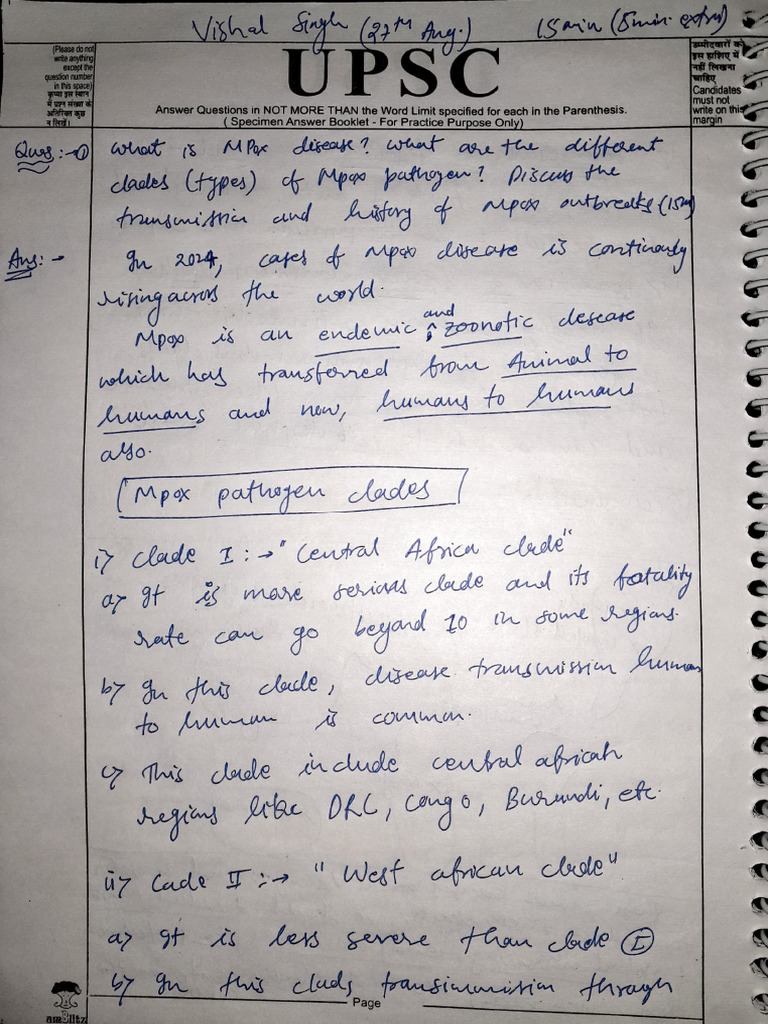 Vishal Singh (27th Aug.) 15min (5min extra)
(Please do not
write anything
except the
question number
in this space)
कृपया इस स्थान
में प्रश्न संख्या के
अतिरिक्त कुछ
न लिखें।
UPSC
Answer Questions in NOT MORE THAN the Word Limit specified for each in the Parenthesis.
( Specimen Answer Booklet - For Practice Purpose Only)
उम्मीदवारों को
इस हाशिए में
नहीं लिखना
चाहिए
Candidates
must not
write on this
margin
Ques:-① What is MPox disease? What are the different
clades (types) of Mpox pathogen? Discuss the
transmission and history of mpox outbreaks (15m)
Ans:- In 2024, cases of Mpox disease is continously
rising across the world.
Mpox is an endemic and zoonotic desease
which has transferred from Animal to
humans and now, humans to humans
also.
Mpox pathogen clades
i) Clade I :→ "Central Africa clade"
a) It is more serious clade and its fatality
rate can go beyond 10 in some regions.
b) In this clade, disease transmission human
to human is common.
c) This clade include central african
regions like DRC, Congo, Burundi, etc.
ii) Cade II :→ "West african clade"
a) It is less severe than clade Ⓘ
b) In this clads transimmission through
Page